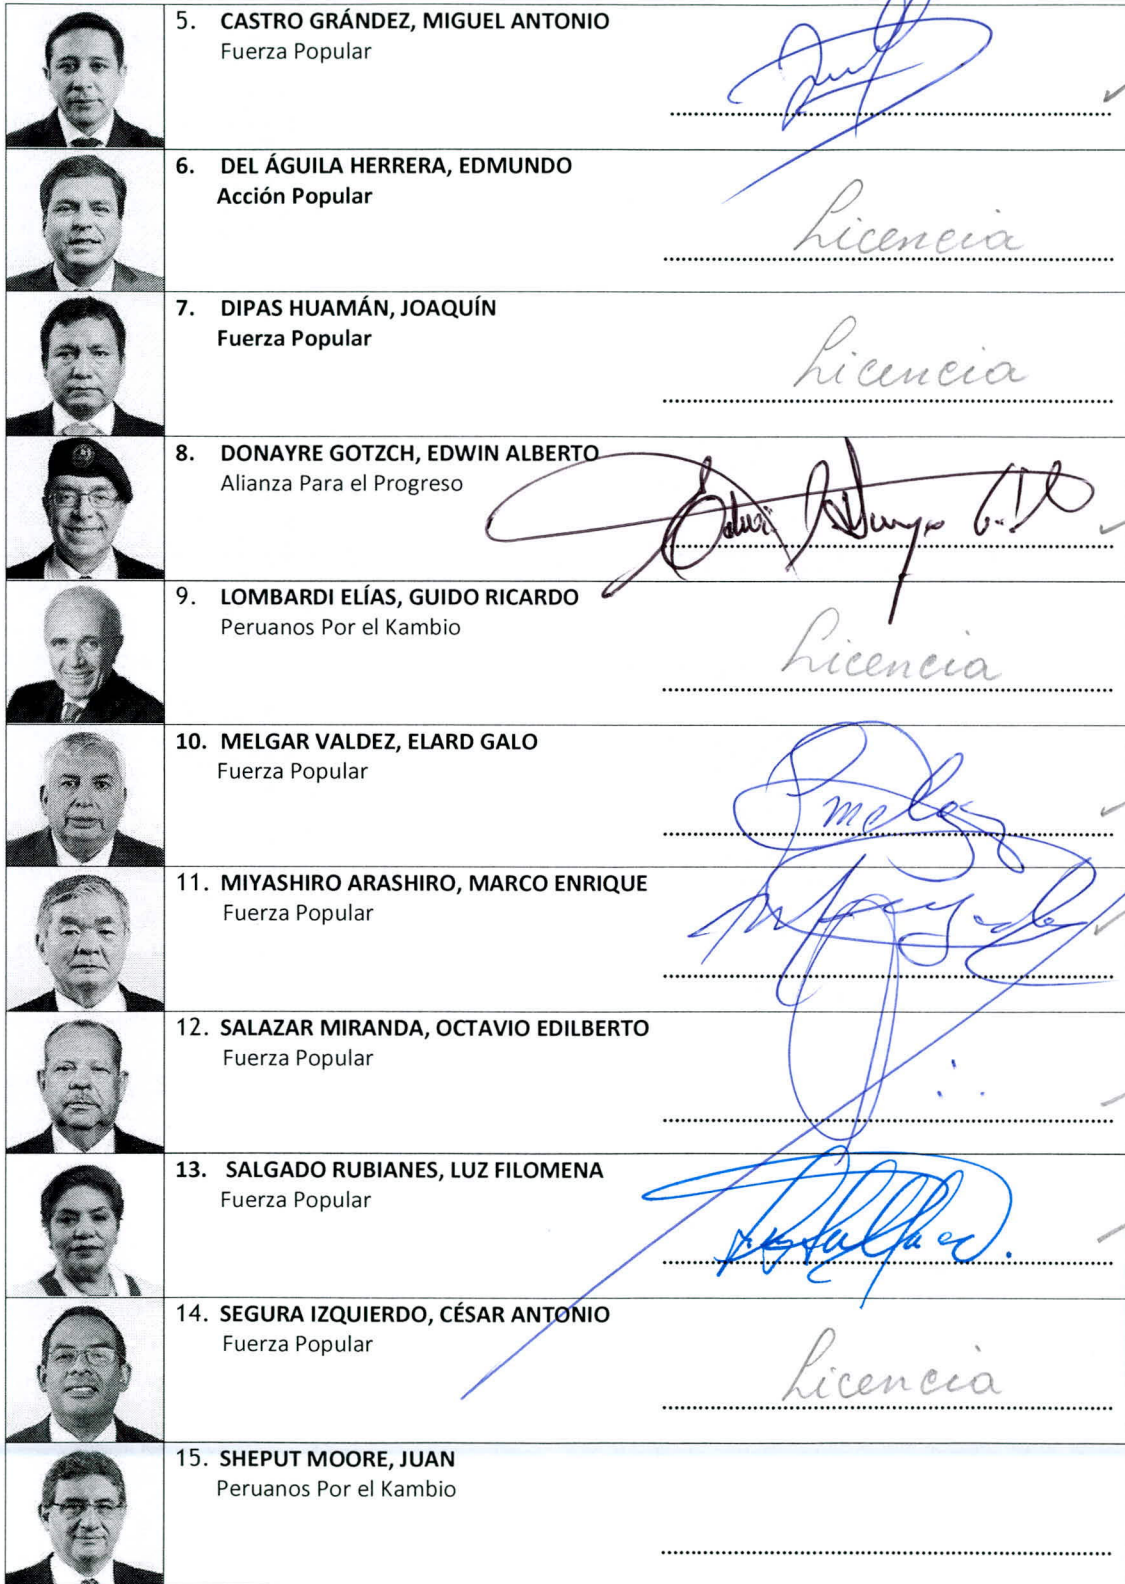 5. CASTRO GRÁNDEZ, MIGUEL ANTONIO
Fuerza Popular
6. DEL ÁGUILA HERRERA, EDMUNDO
Acción Popular
Licencia
7. DIPAS HUAMÁN, JOAQUÍN
Fuerza Popular
Licencia
8. DONAYRE GOTZCH, EDWIN ALBERTO
Alianza Para el Progreso
9. LOMBARDI ELÍAS, GUIDO RICARDO
Peruanos Por el Kambio
Licencia
10. MELGAR VALDEZ, ELARD GALO
Fuerza Popular
11. MIYASHIRO ARASHIRO, MARCO ENRIQUE
Fuerza Popular
12. SALAZAR MIRANDA, OCTAVIO EDILBERTO
Fuerza Popular
13. SALGADO RUBIANES, LUZ FILOMENA
Fuerza Popular
14. SEGURA IZQUIERDO, CÉSAR ANTONIO
Fuerza Popular
Licencia
15. SHEPUT MOORE, JUAN
Peruanos Por el Kambio